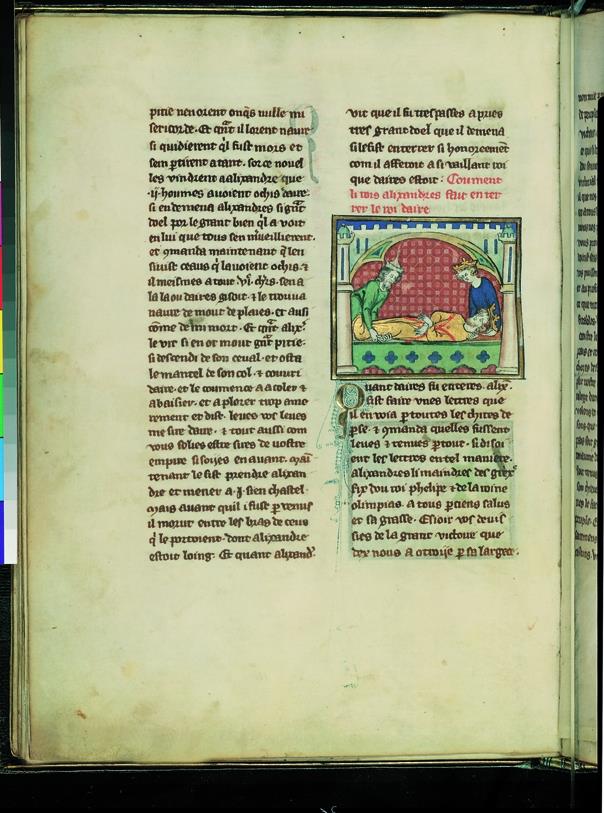 pitie nen orent onq̄s nulle mi
sericorde. Et q̄nt il lorent naure
si quidierent q̄l fust mors et
sen ꝑtirent a tant. sor ce nouel
les vindrent a alixandre que
.ij. houmes auoient ochis daire.
si en demena alixandres si gᵃnt
doel por le grant bien q̄l a voit
en lui que tous sen miueillierent.
et ꝯmanda maintenant q̄ len
siuist ceaus q̄ lauoient ochis. ⁊
il meismes a tout .vj. chr̄s. sen a
la la ou daires gisoit. ⁊ le trouua
naure de mout de plaies. et ausi
cōme de mi mort. Et q̄nt alixᵉ
le vit si en ot mout gᵃnt pitie.
si descendi de son ceual. et osta
le mantel de son col. ⁊ couuri
daire. et le comence a acoler ⁊
a baisier. et a plorer trop ame
rement et dist. leues vos leues
me sire daire. ⁊ tout aussi com
vous solies estre sires de uostre
empire si soijes en auant. mai
tenant le fist prendre alixan
dre et mener a .j. sien chastel
mais auant quil i fust ꝑuenus
il morut entre les bras de ceus
q̄ le portoient. dont alixandre
estoit loing. Et quant alixand᷑
vit que il fu trespasses apries
tres grant doel que il demena
si le fist enterrer si honorceemēt
com il afferoit a si vaillant roi
que daires estoit. Coument
li rois alixandres fait en ter
rer le roi daire
Quant daires fu enteres. alix.
fist faire vnes lettres que
il en voia ꝑ toutes les chites de
ꝑse. ⁊ ꝯmanda quelles fussent
leues ⁊ tenues ꝑ tout. si disoi
ent les lettres en tel maniere.
alixandres li maindres des grex.
fix dou roi phelipe ⁊ de la roine
olimpias. a tous ꝑciens salus
et sa grasse. Esioir vos deuis
sies de la grant victoire que
dex nous a ottroije ꝑ sa largece.